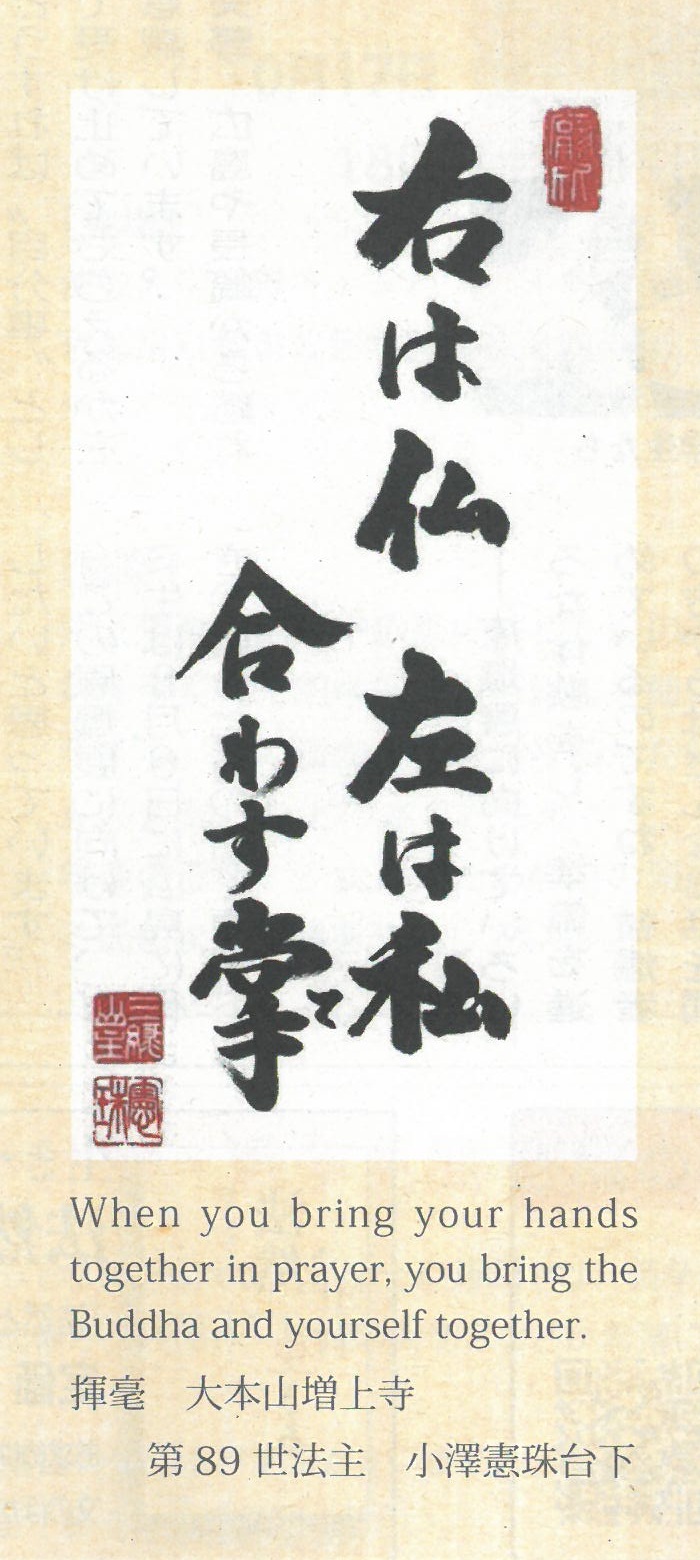 右は仏　左は私
合わす掌て
三縁山主
憲珠
When you bring your hands
together in prayer, you bring the
Buddha and yourself together.
揮毫　大本山増上寺
第 89 世法主　小澤憲珠台下